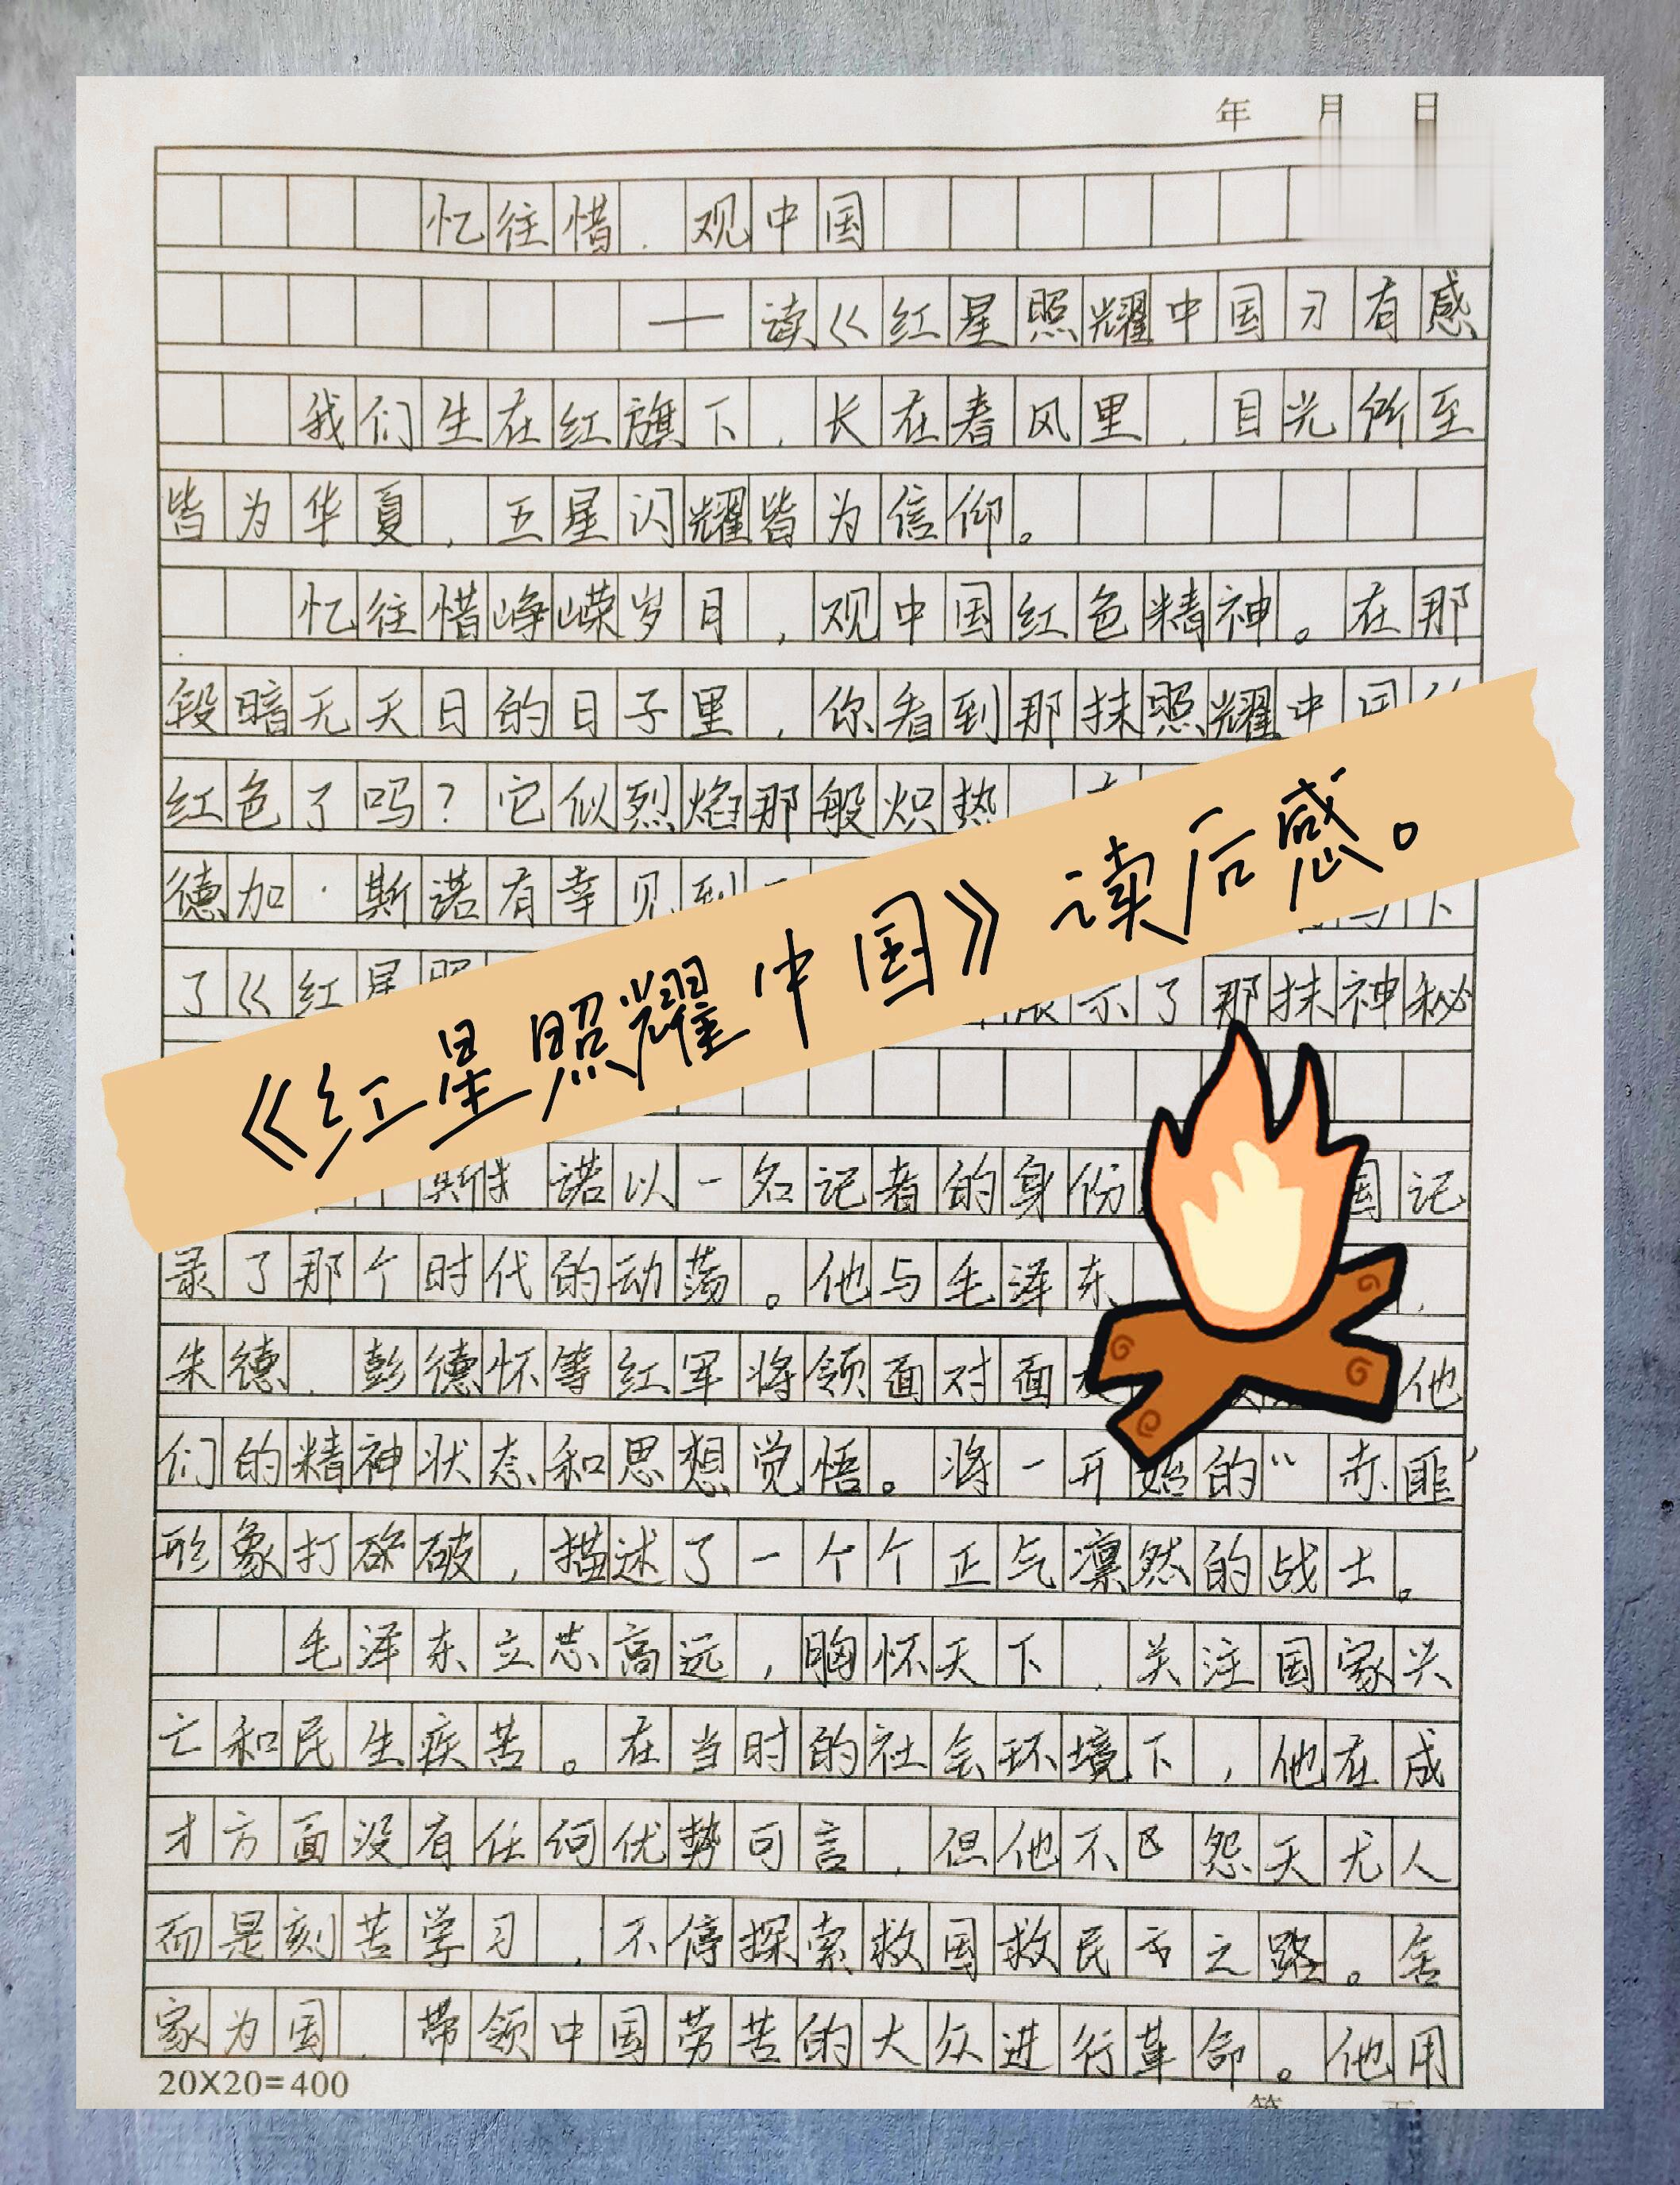 年 月 日
忆往惜，观中国
——读《红星照耀中国》有感
我们生在红旗下，长在春风里，目光所至
皆为华夏，五星闪耀皆为信仰。
忆往惜峥嵘岁月，观中国红色精神。在那
段暗无天日的日子里，你看到那抹照耀中国
红色了吗？它似烈焰那般炽热
德加·斯诺有幸见到
了《红星照 展示了那抹神秘
《红星照耀中国》读后感。
斯 诺以一名记者的身份 国记
录了那个时代的动荡。他与毛泽东
朱德，彭德怀等红军将领面对面 他
们的精神状态和思想觉悟。将一开始的“赤匪”
形象打破，描述了一个个正气凛然的战士。
毛泽东立志高远，胸怀天下，关注国家兴
亡和民生疾苦。在当时的社会环境下，他在成
才方面没有任何优势可言，但他不 怨天尤人
而是刻苦学习，不停探索救国救民 之路。舍
家为国，带领中国劳苦的大众进行革命。他用
20X20=400